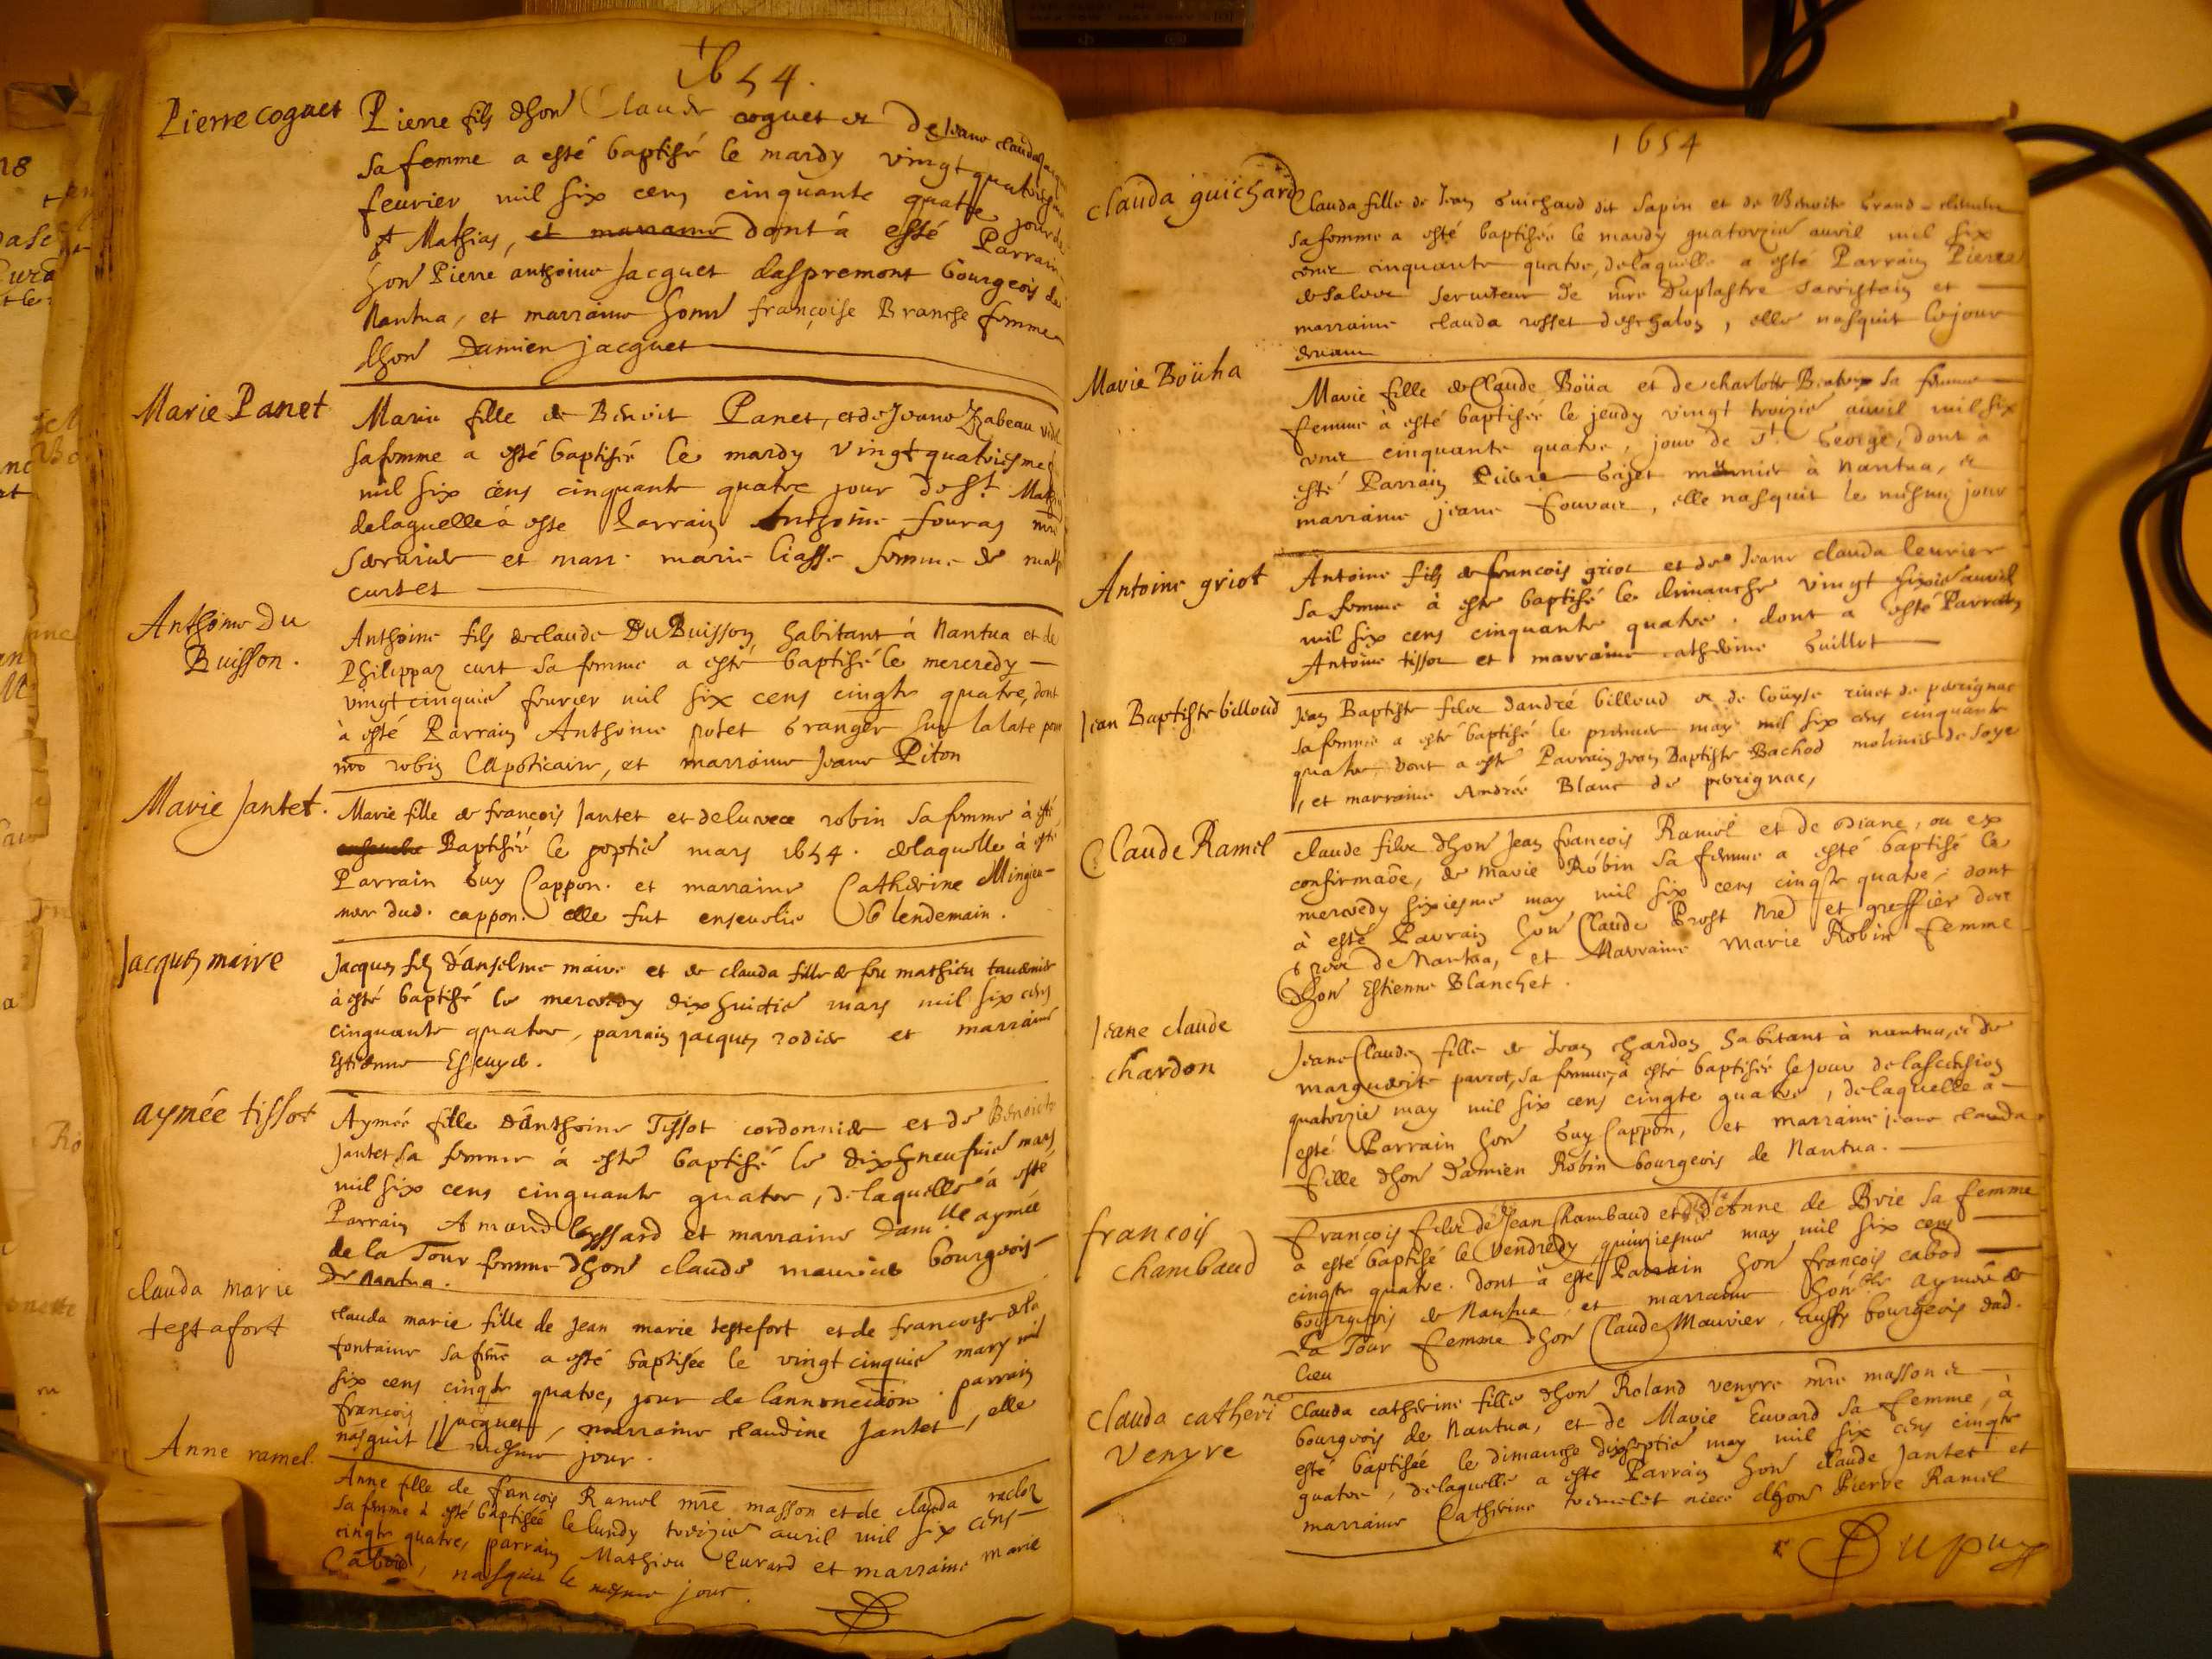 1654.
Pierre coguet
Pierre fils dhon Claude coguet et de Jeane clauda
sa femme a esté baptisé le mardy vingt quatriesme
feurier mil six cens cinquante quatre jour de
st Mathias, et marraine dont à esté Parrain
hon Pierre anthoine Jacquet daspremont bourgeois de
Nantua, et marraine honn françoise Branche femme
dhon Damien Jacquet
Marie Panet
Marie fille de Benoit Panet, et de Jeane Yzabeau
sa femme a esté baptisée le mardy vingt quatriesme
mil six cens cinquante quatre jour de st. Math
delaquelle à esté Parrain Anthoine fouras mre
serrurier et marr. marie liasse femme de math
curtet
Anthoine Du
Buisson.
Anthoine fils de claude Du Buisson habitant à Nantua et de
Philippaz curt sa femme a esté baptisé le mercredy
vingt cinquie feurier mil six cens cingte quatre, dont
à esté Parrain Anthoine potet granger sur la late pour
mre robin Apoticaire, et marraine Jeane Piton
Marie Jantet.
Marie fille de françois Jantet et de lucrece robin sa femme à esté
Baptisée le septie mars 1654. delaquelle à esté
Parrain Guy Cappon. et marraine Catherine Mingieu-
mere dud. cappon. elle fut enseuelie le lendemain.
Jacques maire
Jacques fils d'anselme maire et de clauda fille de feu mathieu tauernier
à esté baptisé le mercredy dix huictie mars mil six cens
cinquante quatre, parrain jacques rodier et marraine
Estienne
aymée tissot
Aymée fille d'Anthoine Tissot cordonnier et de Benoicte
Jantet sa femme à esté baptisé le dix neufuie mars
mil six cens cinquante quatre, delaquelle à esté
Parrain Amand lassard et marraine dam.lle aymée
de la Tour femme dhon claude maurier bourgeois
de Nantua.
clauda marie
testafort
clauda marie fille de Jean marie testefort et de francoise de la
fontaine sa feme a esté baptisée le vingt cinquie mars mil
six cens cingte quatre, jour de lannonciaon. parrain
françois jacquet, marraine claudine Jantet, elle
nasquit le mesme jour.
Anne ramel.
Anne fille de françois Ramel mre masson et de clauda racloz
sa femme à esté baptisée le lundy treizie auril mil six cens
cingte quatre, parrain Mathieu Eurard et marraine marie
Cabod, nasquit le mesme jour.
1654
clauda guichard
Clauda fille de Jean Guichard dit Sapin et de Benoite Grand-clement
sa femme a esté baptisée le mardy quatorzie auril mil six
cens cinquante quatre, delaquelle a esté Parrain Pierre
desalver seruiteur de mre Duplastre sacristain et
marraine clauda rosset deschalon, elle nasquit le jour
deuant
Marie Boüha
Marie fille de Claude Boüa et de charlotte Beatrix sa femme
femme à esté baptisée le jeudy vingt troizie auril mil six
cens cinquante quatre, jour de St. George, dont à
esté Parrain Pierre Gajet munier à Nantua, et
marraine jeane fouvair, elle nasquit le mesme jour
Antoine griot
Antoine fils de francois griot et de Jeane clauda leurier
sa femme à esté baptisé le dimanche vingt sixie auril
mil six cens cinquante quatre. dont a esté Parrain
Antoine tissot et marraine catherine Guillot
Jean Baptiste billoud
Jean Baptiste filz dandré billoud et de Loüyse rivet de perignac
sa femme a esté baptisé le premier may mil six cens cinquante
quatre dont a esté Parrain Jean Baptiste Bachod molinier de Soye
, et marraine Andrée Blanc de perignac,
Claude Ramel
claude filz dhon Jean françois Ramel et de Diane, ou ex
confirmaõe, de Marie Robin sa femme a esté baptisé le
mercredy sixiesme may mil six cens cingte quatre, dont
à esté Parrain hon Claude Prost Nre et greffier dez
de Nantua, et Marraine Marie Robin femme
dhon Estienne Blanchet.
Jeane claude
chardon
Jeane Claude fille de Jean chardon habitant à nantua, et de
marguerite parrot, sa femme, à esté baptisée le jour de lascension
quatorzie may mil six cens cingte quatre, delaquelle a
esté Parrain hon Guy Cappon, et marraine jeane clauda
fille dhon Damien Robin bourgeois de Nantua.
francois
chambaud
François filz de Jean Chambaud et d'Anne de Brie sa femme
a esté baptisé le vendredy quinziesme may mil six cens
cingte quatre. dont à esté Parrain hon françois cabod
bourgeois de Nantua, et marraine hon.ble aymée de
La Tour femme dhon Claude Mauvier, aussy bourgeois dud.
lieu
Clauda catherine
venyre
Clauda catherine fille dhon Roland venyre mre masson et
bourgeois de Nantua, et de Marie Euvard sa femme, à
esté baptisée le dimanche dixseptie may mil six cens cingte
quatre, delaquelle a esté Parrain hon claude Jantet et
marraine Catherine tremelet niece dhon Pierre Ramel
Dupuy